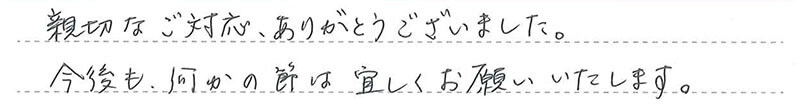 親切なご対応、ありがとうございました。
今後も、何かの節は宜しくお願いいたします。